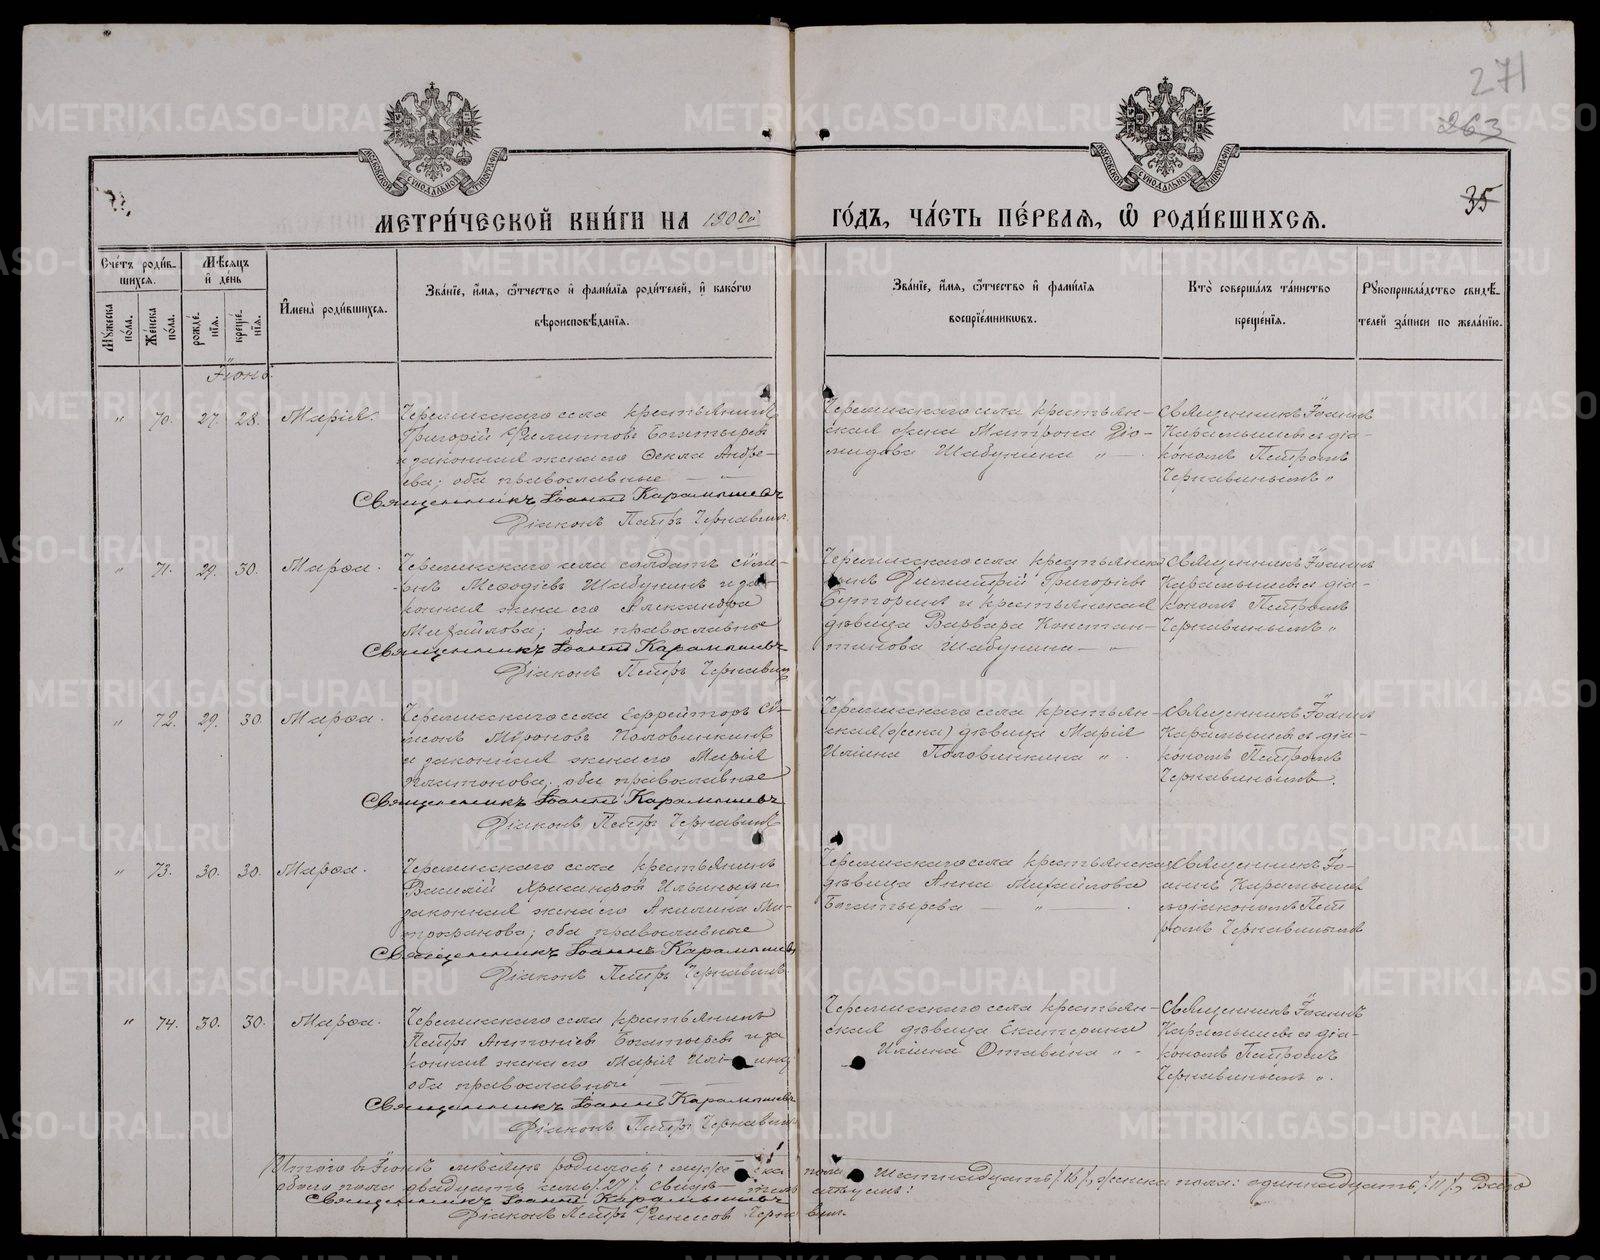 271
263
35
МОСКОВСКОЙ СѴНОДАЛЬНОЙ ТИПОГРАФІИ
МОСКОВСКОЙ СѴНОДАЛЬНОЙ ТИПОГРАФІИ
МЕТРИ́ЧЕСКОЙ КНИ́ГИ НА 1900й ГО́ДЪ, ЧА́СТЬ ПЕ́РВАѦ, Ѡ РОДИ́ВШИХСѦ.
Сче́тъ роди́вшихсѧ.
Мѣ́сѧцъ и де́нь
Мꙋ́жеска по́ла.
Же́нска по́ла.
рожде́нїѧ.
креще́нїѧ.
Имена̀ роди́вшихсѧ.
Зва́нїе, и́мѧ, ѻ҆́тчество и фами́лїѧ роди́телей, и како́гѡ
вѣроисповѣ́данїѧ.
Зва́нїе, и́мѧ, ѻ҆́тчество и фами́лїѧ
воспрїе́мникѡвъ.
Кто̀ соверша́лъ та́инство
креще́нїѧ.
Рꙋкоприкла́дство свидѣ́-
телей за́писи по жела́нїю.
Іюнь.
" 70. 27. 28. Марія.
Черемисскаго села крестьянинъ
Григорій Филипповъ Богатыревъ
и законная жена его Ѳекла Андре-
ева; оба православные
Священникъ Іоаннъ Карамышевъ
Діаконъ Петръ Чернавинъ.
Черемисскаго села крестьян-
ская жена Матрона Діо-
мидова Шабунина "
Священникъ Іоаннъ
Карамышевъ съ діа-
кономъ Петромъ
Чернавинымъ "
" 71. 29. 30. Марѳа.
Черемисскаго села солдатъ Сѵме-
онъ Меѳодіевъ Шабунинъ и за-
конная жена его Александра
Михайлова; оба православные
Священникъ Іоаннъ Карамышевъ
Діаконъ Петръ Чернавинъ
Черемисскаго села крестьян-
инъ Димитрій Григорьевъ
Буторинъ и крестьянская
дѣвица Варвара Констан-
тинова Шабунина "
Священникъ Іоаннъ
Карамышевъ съ діа-
кономъ Петромъ
Чернавинымъ "
" 72. 29. 30. Марѳа.
Черемисскаго села Ефрейторъ Сѵ-
меонъ Мѵроновъ Половинкинъ
и законная жена его Марія
Платонова; оба православные
Священникъ Іоаннъ Карамышевъ
Діаконъ Петръ Чернавинъ
Черемисскаго села крестьян-
ская (жена) дѣвица Марія
Иліина Половинкина "
Священникъ Іоаннъ
Карамышевъ съ діа-
кономъ Петромъ
Чернавинымъ.
" 73. 30. 30. Марѳа.
Черемисскаго села крестьянинъ
Василій Хрисанѳовъ Ильиныхъ и
законная жена его Акилина Ми-
трофанова; оба православные
Священникъ Іоаннъ Карамышевъ
Діаконъ Петръ Чернавинъ.
Черемисскаго села крестьянская
дѣвица Анна Михайлова
Богатырева "
Священникъ Іо-
аннъ Карамышев
съ діакономъ Пет
ромъ Чернавинымъ
" 74. 30. 30. Марѳа.
Черемисскаго села крестьянинъ
Петръ Антоніевъ Богатыревъ и за
конная жена его Марія
оба православные
Священникъ Іоаннъ Карамышевъ
Діаконъ Петръ Чернавинъ
Черемисскаго села крестьян-
ская дѣвица Екатерина
Иліина Отавина "
Священникъ Іоаннъ
Карамышевъ съ діа-
кономъ Петромъ
Чернавинымъ ".
Итого въ Іюнѣ мѣсяцѣ родилось: мужеска пола Шестнадцать /16/, женска пола: одиннадцать /11/, Всего
обоего пола двадцать семь /27/. Свидѣтельствуемъ:
Священникъ Іоаннъ Карамышевъ
Діаконъ Петръ Чернавин.
METRIKI.GASO-URAL.RU